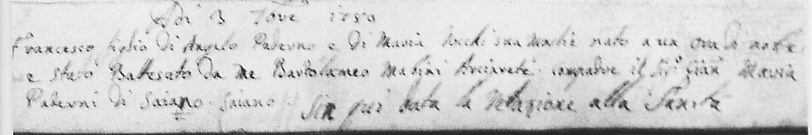 Adi 3 9bre 1780
Francesco figlio di Angelo Paderno e di Maria sua moglie nato a un ora di notte
e stato Battesato da me Bartolameo Mabini Arciprete. compadre il Sig.e Gian Maria
Paderni di Gaiano. Gaiano. Sin qui data la Relazione alla Sanità